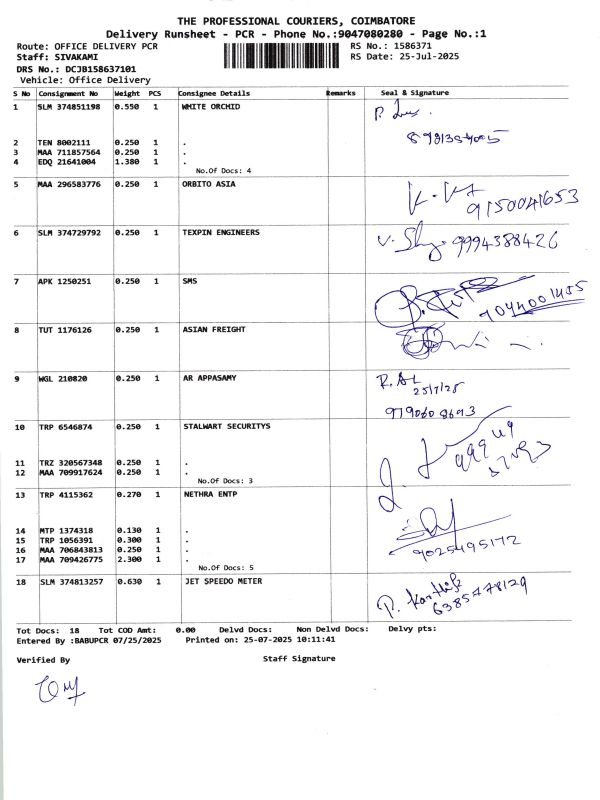 THE PROFESSIONAL COURIERS, COIMBATORE
Delivery Runsheet - PCR - Phone No.:9047080280 - Page No.:1
Route: OFFICE DELIVERY PCR RS No.: 1586371
Staff: SIVAKAMI RS Date: 25-Jul-2025
DRS No.: DCJB158637101
Vehicle: Office Delivery
S No Consignment No Weight PCS Consignee Details Remarks Seal & Signature
1 SLM 374851198 0.550 1 WHITE ORCHID
2 TEN 8002111 0.250 1 .
3 MAA 711857564 0.250 1 .
4 EDQ 21641004 1.380 1 .
No.Of Docs: 4
5 MAA 296583776 0.250 1 ORBITO ASIA
9150041653
6 SLM 374729792 0.250 1 TEXPIN ENGINEERS
9994388426
7 APK 1250251 0.250 1 SMS
8 TUT 1176126 0.250 1 ASIAN FREIGHT
9 WGL 210820 0.250 1 AR APPASAMY
25/7/25
10 TRP 6546874 0.250 1 STALWART SECURITYS
11 TRZ 320567348 0.250 1 .
12 MAA 709917624 0.250 1 .
No.Of Docs: 3
13 TRP 4115362 0.270 1 NETHRA ENTP
14 MTP 1374318 0.130 1 .
15 TRP 1056391 0.300 1 .
16 MAA 706843813 0.250 1 .
17 MAA 709426775 2.300 1 .
9025495172
No.Of Docs: 5
18 SLM 374813257 0.630 1 JET SPEEDO METER
P. Karthik
6385778129
Tot Docs: 18 Tot COD Amt: 0.00 Delvd Docs: Non Delvd Docs: Delvy pts:
Entered By :BABUPCR 07/25/2025 Printed on: 25-07-2025 10:11:41
Verified By Staff Signature